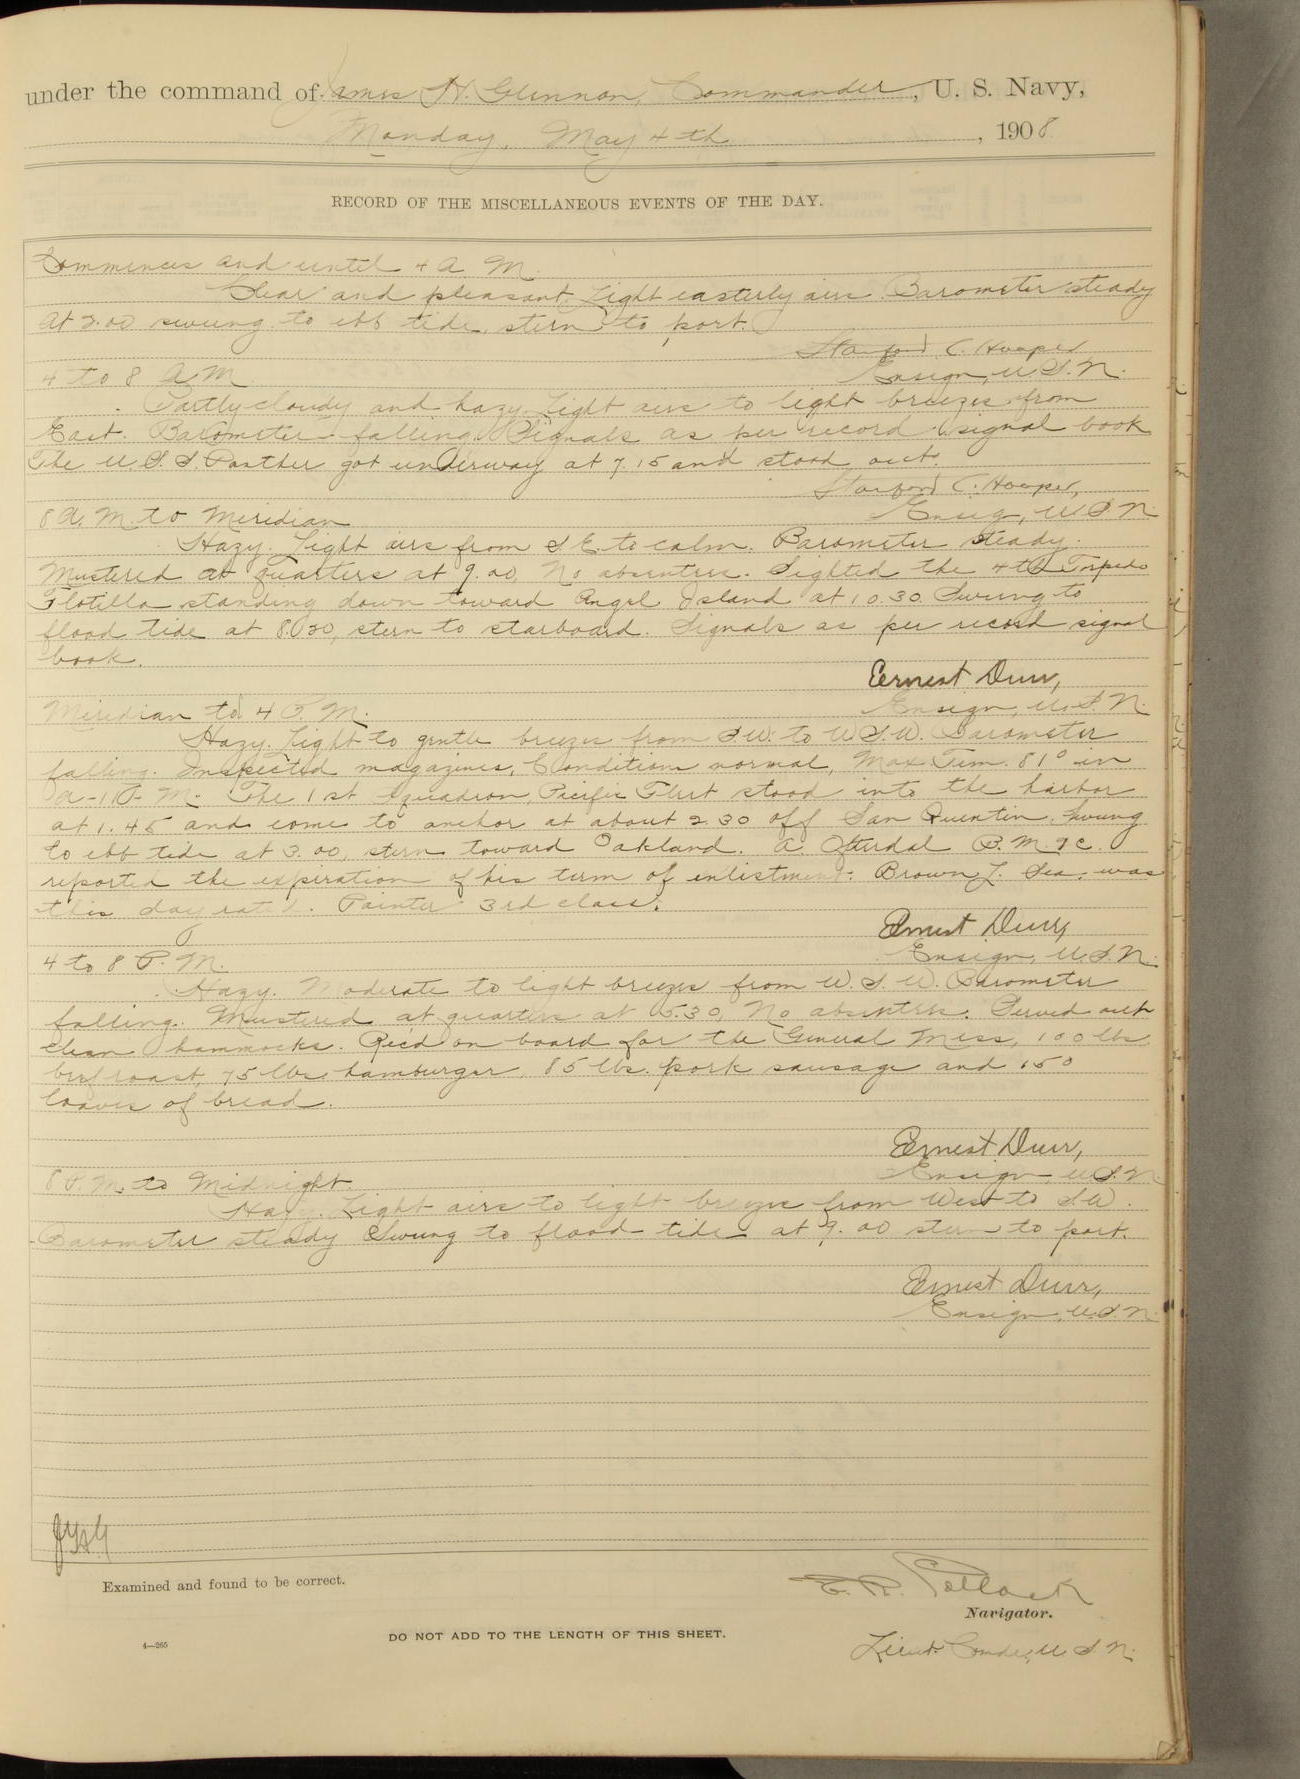 under the command of James H. Glennon, Commander, U. S. Navy,
Monday, May 4th, 1908
RECORD OF THE MISCELLANEOUS EVENTS OF THE DAY.
Commences and until 4 A. M.
Clear and pleasant. Light easterly airs. Barometer steady
At 2.00 swung to ebb tide, stern to port.
Stanford C. Hooper
4 to 8 A.M.
Ensign, U.S.N.
Partly cloudy and hazy. Light airs to light breezes from
East. Barometer falling. Signals as per record signal book
The U.S.S. Panther got underway at 7.15 and stood out.
Stanford C. Hooper,
8 A. M. to Meridian
Ensign, U.S.N.
Hazy. Light airs from S.E. to calm. Barometer steady.
Mustered at quarters at 9.00, No absentees. Sighted the 4th Torpedo
Flotilla standing down toward Angel Island at 10.30. Swung to
flood tide at 8.30, stern to starboard. Signals as per record signal
book.
Ernest Durr,
Meridian to 4 P. M.
Ensign, U.S.N.
Hazy. Light to gentle breezes from S.W. to W.S.W. Barometer
falling. Inspected magazines, Condition normal, Max Tem. 81° in
A-110-M. The 1st Squadron, Pacific Fleet stood into the harbor
at 1.45 and come to anchor at about 2.30 off San Quentin. Swung
to ebb tide at 3.00, stern toward Oakland. A. Otterdal P.M. 1c.
reported the expiration of his term of enlistment. Brown, J. Sea. was
this day rated Painter 3rd class.
Ernest Durr,
4 to 8 P. M.
Ensign, U.S.N.
Hazy. Moderate to light breezes from W. S. W. Barometer
falling. Mustered at quarters at 5.30, No absentees. Served out
clean hammocks. Rec'd on board for the General Mess, 100 lbs
beef roast, 75 lbs hamburger, 85 lbs. pork sausage and 150
loaves of bread.
Ernest Durr,
8 P. M. to Midnight.
Ensign U.S.N.
Hazy. Light airs to light breezes from West to S.W.
Barometer steady Swung to flood tide at 9.00 stern to port.
Ernest Durr,
Ensign, U.S.N.
Examined and found to be correct.
E. R. Pollock
Navigator.
DO NOT ADD TO THE LENGTH OF THIS SHEET.
4—265
Lieut. Comdr., U.S.N.